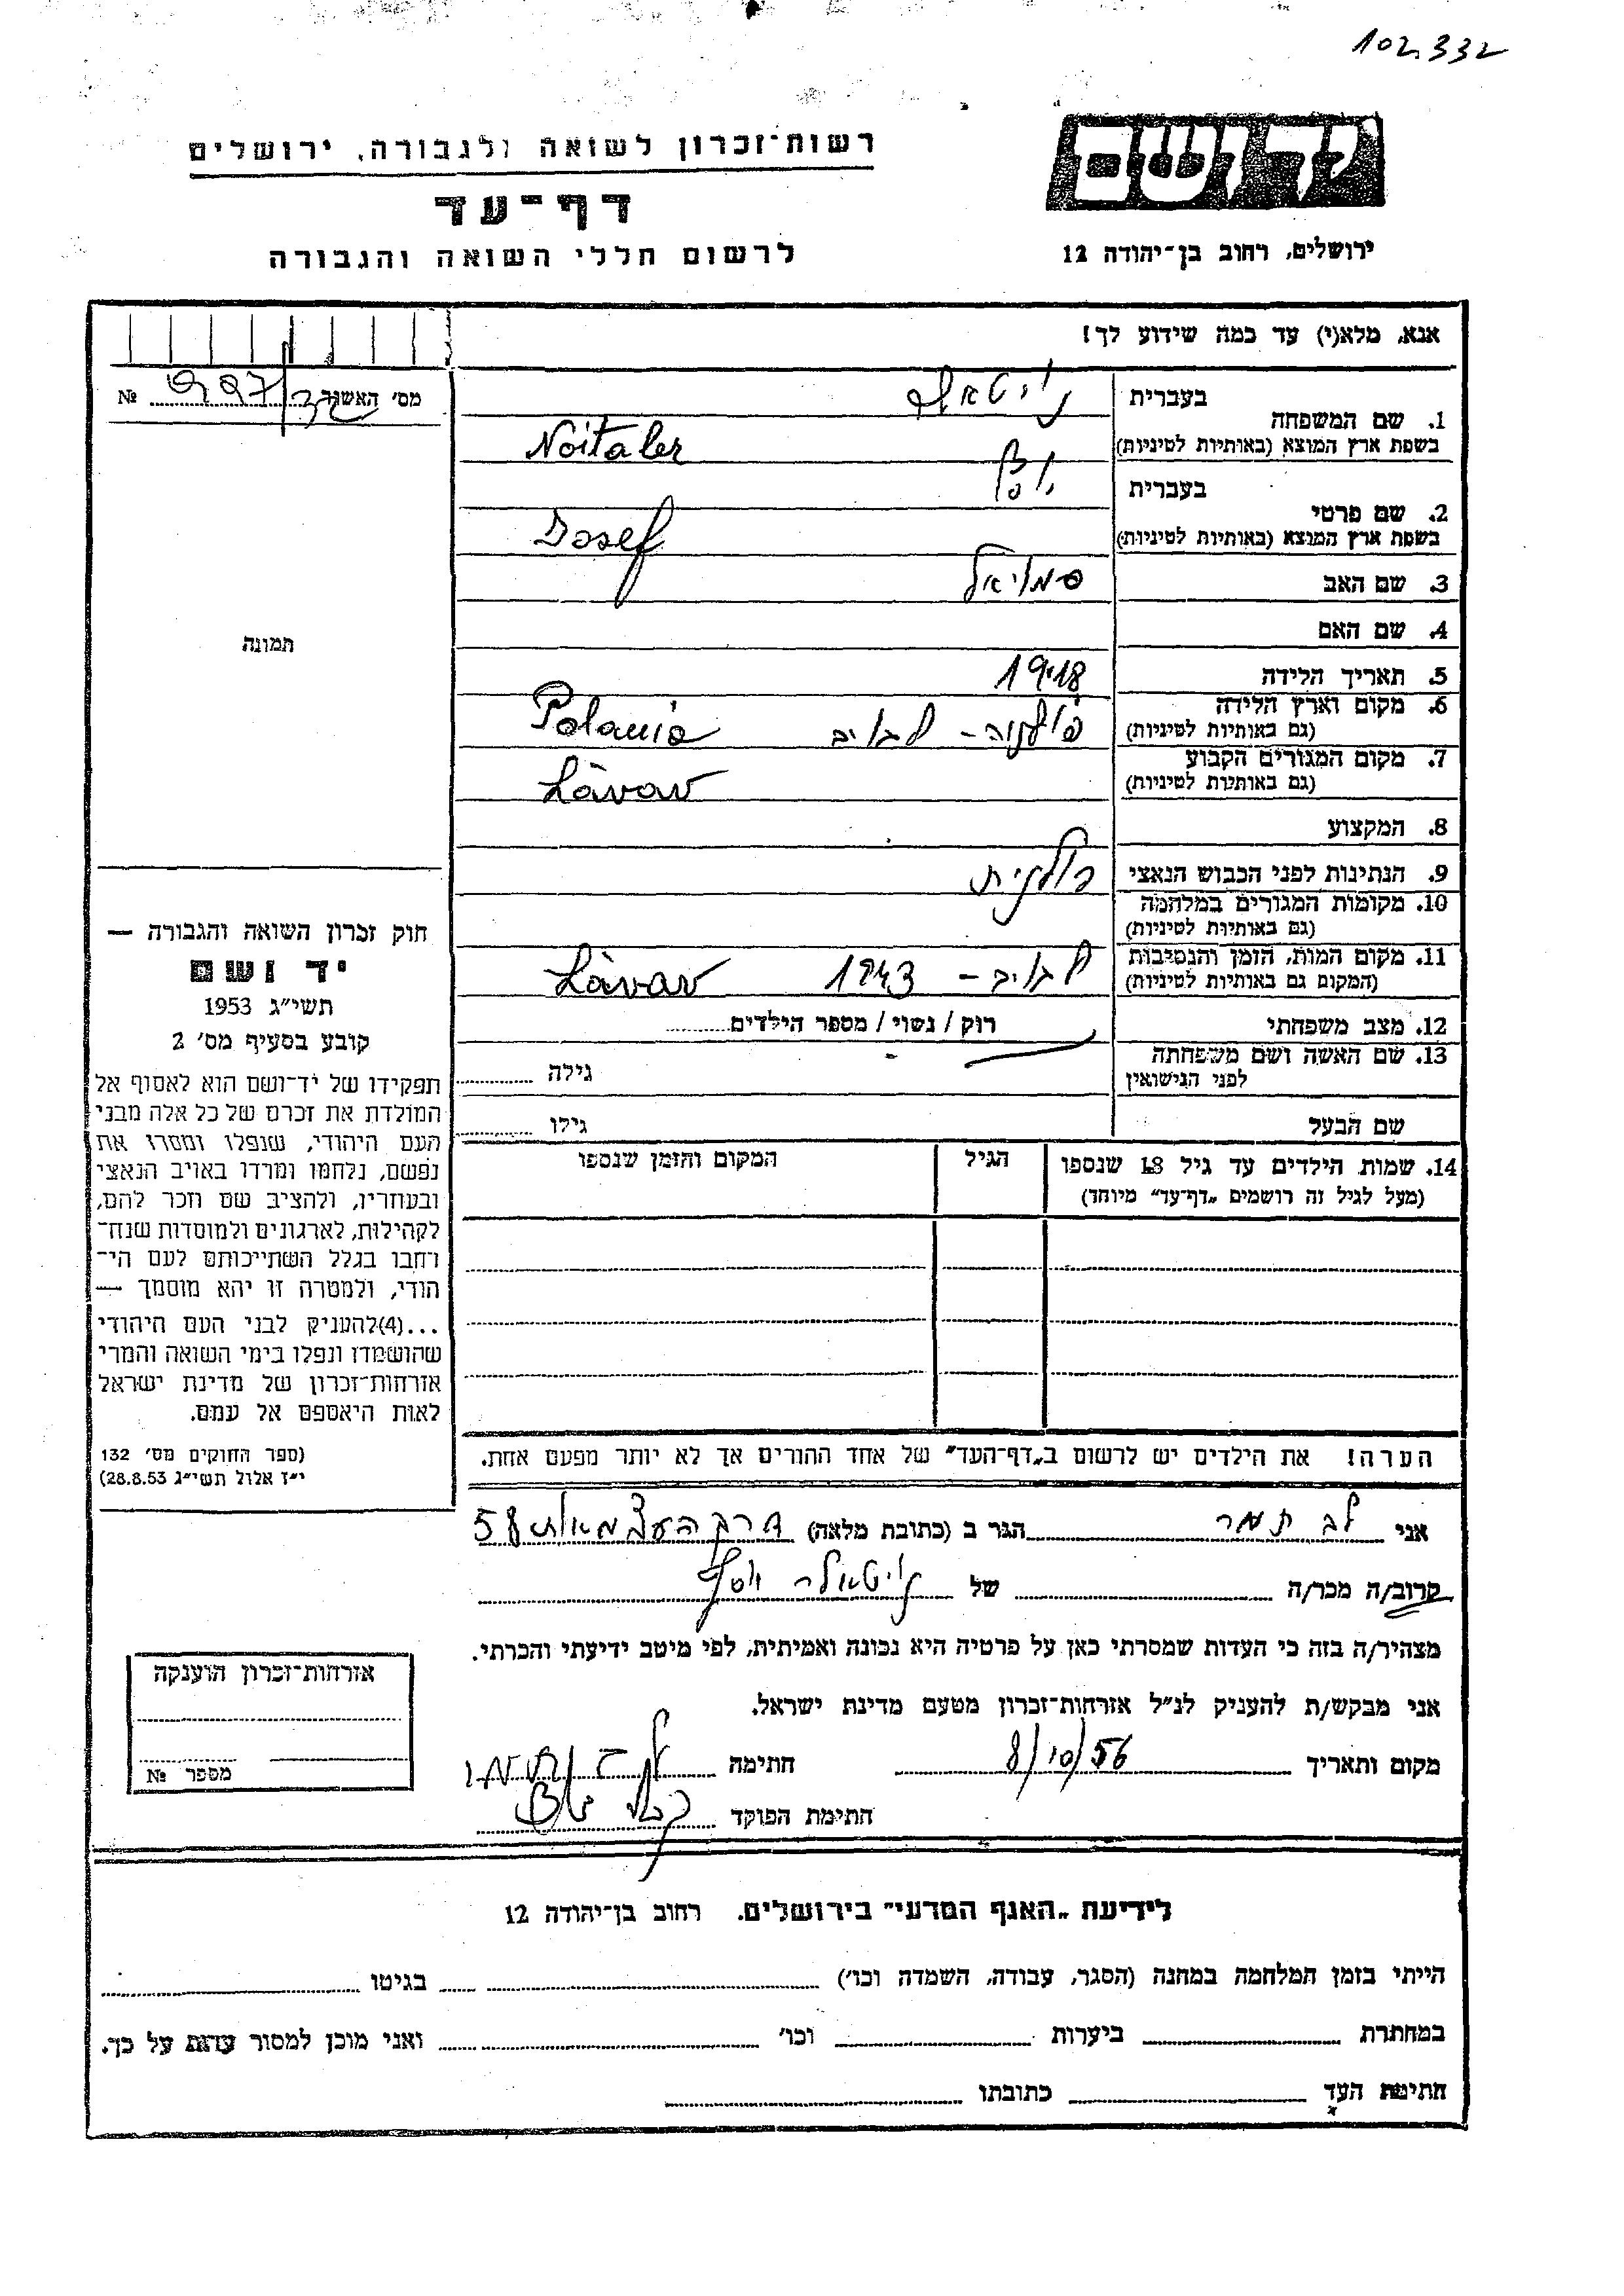 102.332
יד ושם
ירושלים, רחוב בן־יהודה 12
רשות־זכרון לשואה ולגבורה, ירושלים
דף־עד
לרשום חללי השואה והגבורה
אנא, מלא(י) עד כמה שידוע לך!
מס׳ האשנב №
1. שם המשפחה
בעברית
בשפת ארץ המוצא (באותיות לטיניות)
Noitaler
2. שם פרטי
בעברית יוסף
בשפת ארץ המוצא (באותיות לטיניות)
Josef
3. שם האב סמואל
4. שם האם
5. תאריך הלידה 1918
6. מקום וארץ הלידה
(גם באותיות לטיניות)
פולניה - לבוב Polania
7. מקום המגורים הקבוע
(גם באותיות לטיניות)
Lâvov
8. המקצוע
9. הנתינות לפני הכבוש הנאצי פולנית
10. מקומות המגורים במלחמה
(גם באותיות לטיניות)
11. מקום המות, הזמן והנסיבות
(המקום גם באותיות לטיניות)
לבוב - 1943 Lâvov
12. מצב משפחתי רוק / נשוי / מספר הילדים
13. שם האשה ושם משפחתה
לפני הנישואין
גילה
שם הבעל גילו
14. שמות הילדים עד גיל 18 שנספו
(מעל לגיל זה רושמים „דף־עד״ מיוחד)
הגיל
המקום והזמן שנספו
הערה! את הילדים יש לרשום ב„דף־העד״ של אחד ההורים אך לא יותר מפעם אחת.
תמונה
חוק זכרון השואה והגבורה —
יד ושם
תשי״ג 1953
קובע בסעיף מס׳ 2
תפקידו של יד־ושם הוא לאסוף אל
המולדת את זכרם של כל אלה מבני
העם היהודי, שנפלו ומסרו את
נפשם, נלחמו ומרדו באויב הנאצי
ובעוזריו, ולהציב שם וזכר להם,
לקהילות, לארגונים ולמוסדות שנח־
רחבו בגלל השתייכותם לעם הי־
הודי, ולמטרה זו יהא מוסמך —
...(4)להעניק לבני העם היהודי
שהושמדו ונפלו בימי השואה והמרי
אזרחות־זכרון של מדינת ישראל
לאות היאספם אל עמם.
(ספר החוקים מס׳ 132
י״ז אלול תשי״ג 28.8.53)
אני לב תמר הגר ב (כתובת מלאה) דרך העצמאות 58
קרוב/ה מכר/ה של נויטאלר יוסף
מצהיר/ה בזה כי העדות שמסרתי כאן על פרטיה היא נכונה ואמיתית, לפי מיטב ידיעתי והכרתי.
אני מבקש/ת להעניק לנ״ל אזרחות־זכרון מטעם מדינת ישראל.
מקום ותאריך 8/10/56 חתימה
חתימת הפוקד
אזרחות־זכרון הוענקה
מספר №
לידיעת „האגף המדעי״ בירושלים. רחוב בן־יהודה 12
הייתי בזמן המלחמה במחנה (הסגר, עבודה, השמדה וכו׳) בגיטו
במחתרת ביערות וכו׳ ואני מוכן למסור עדות על כך.
חתימת העד כתובתו